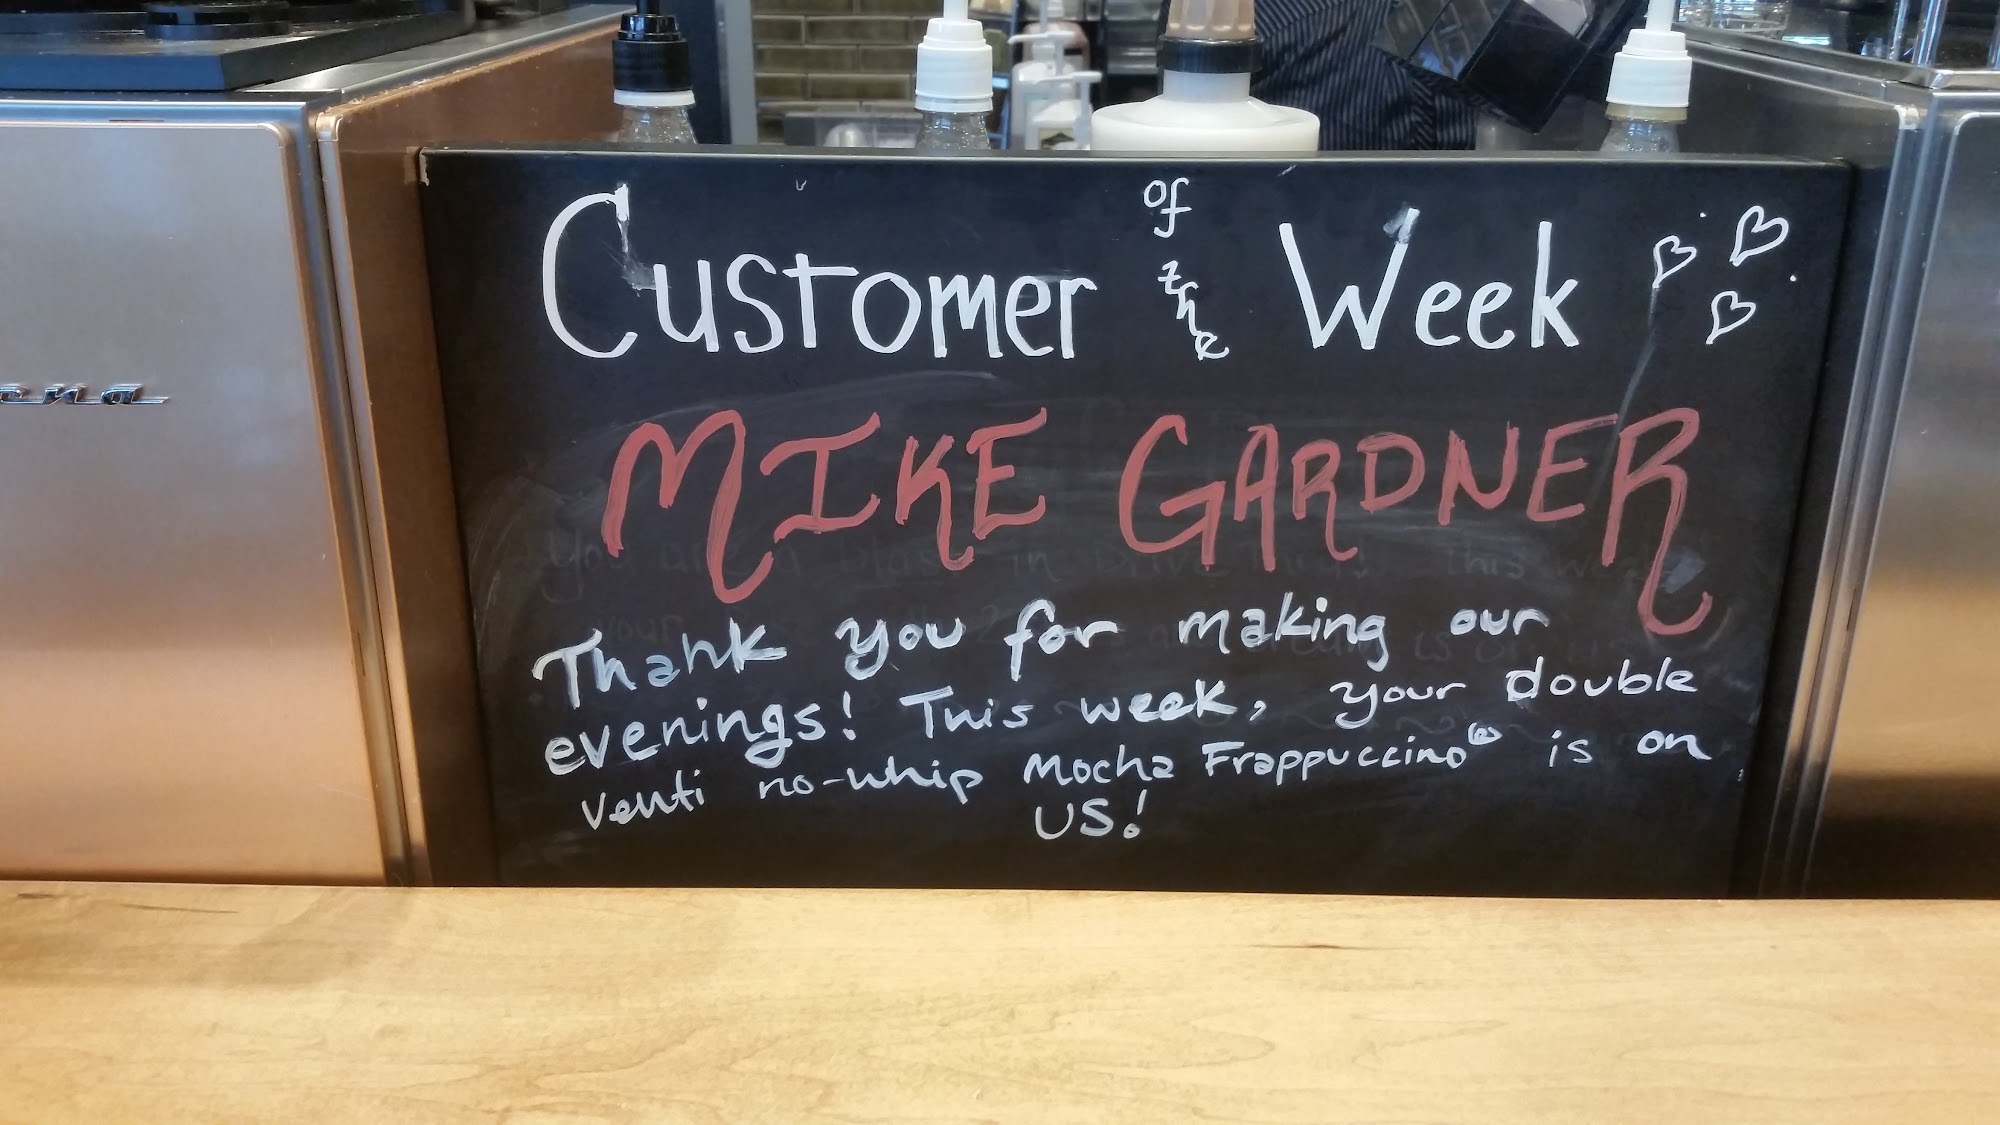 Customer of the Week
MIKE GARDNER
Thank you for making our
evenings! This week, your double
venti no-whip Mocha Frappuccino® is on
US!
ena